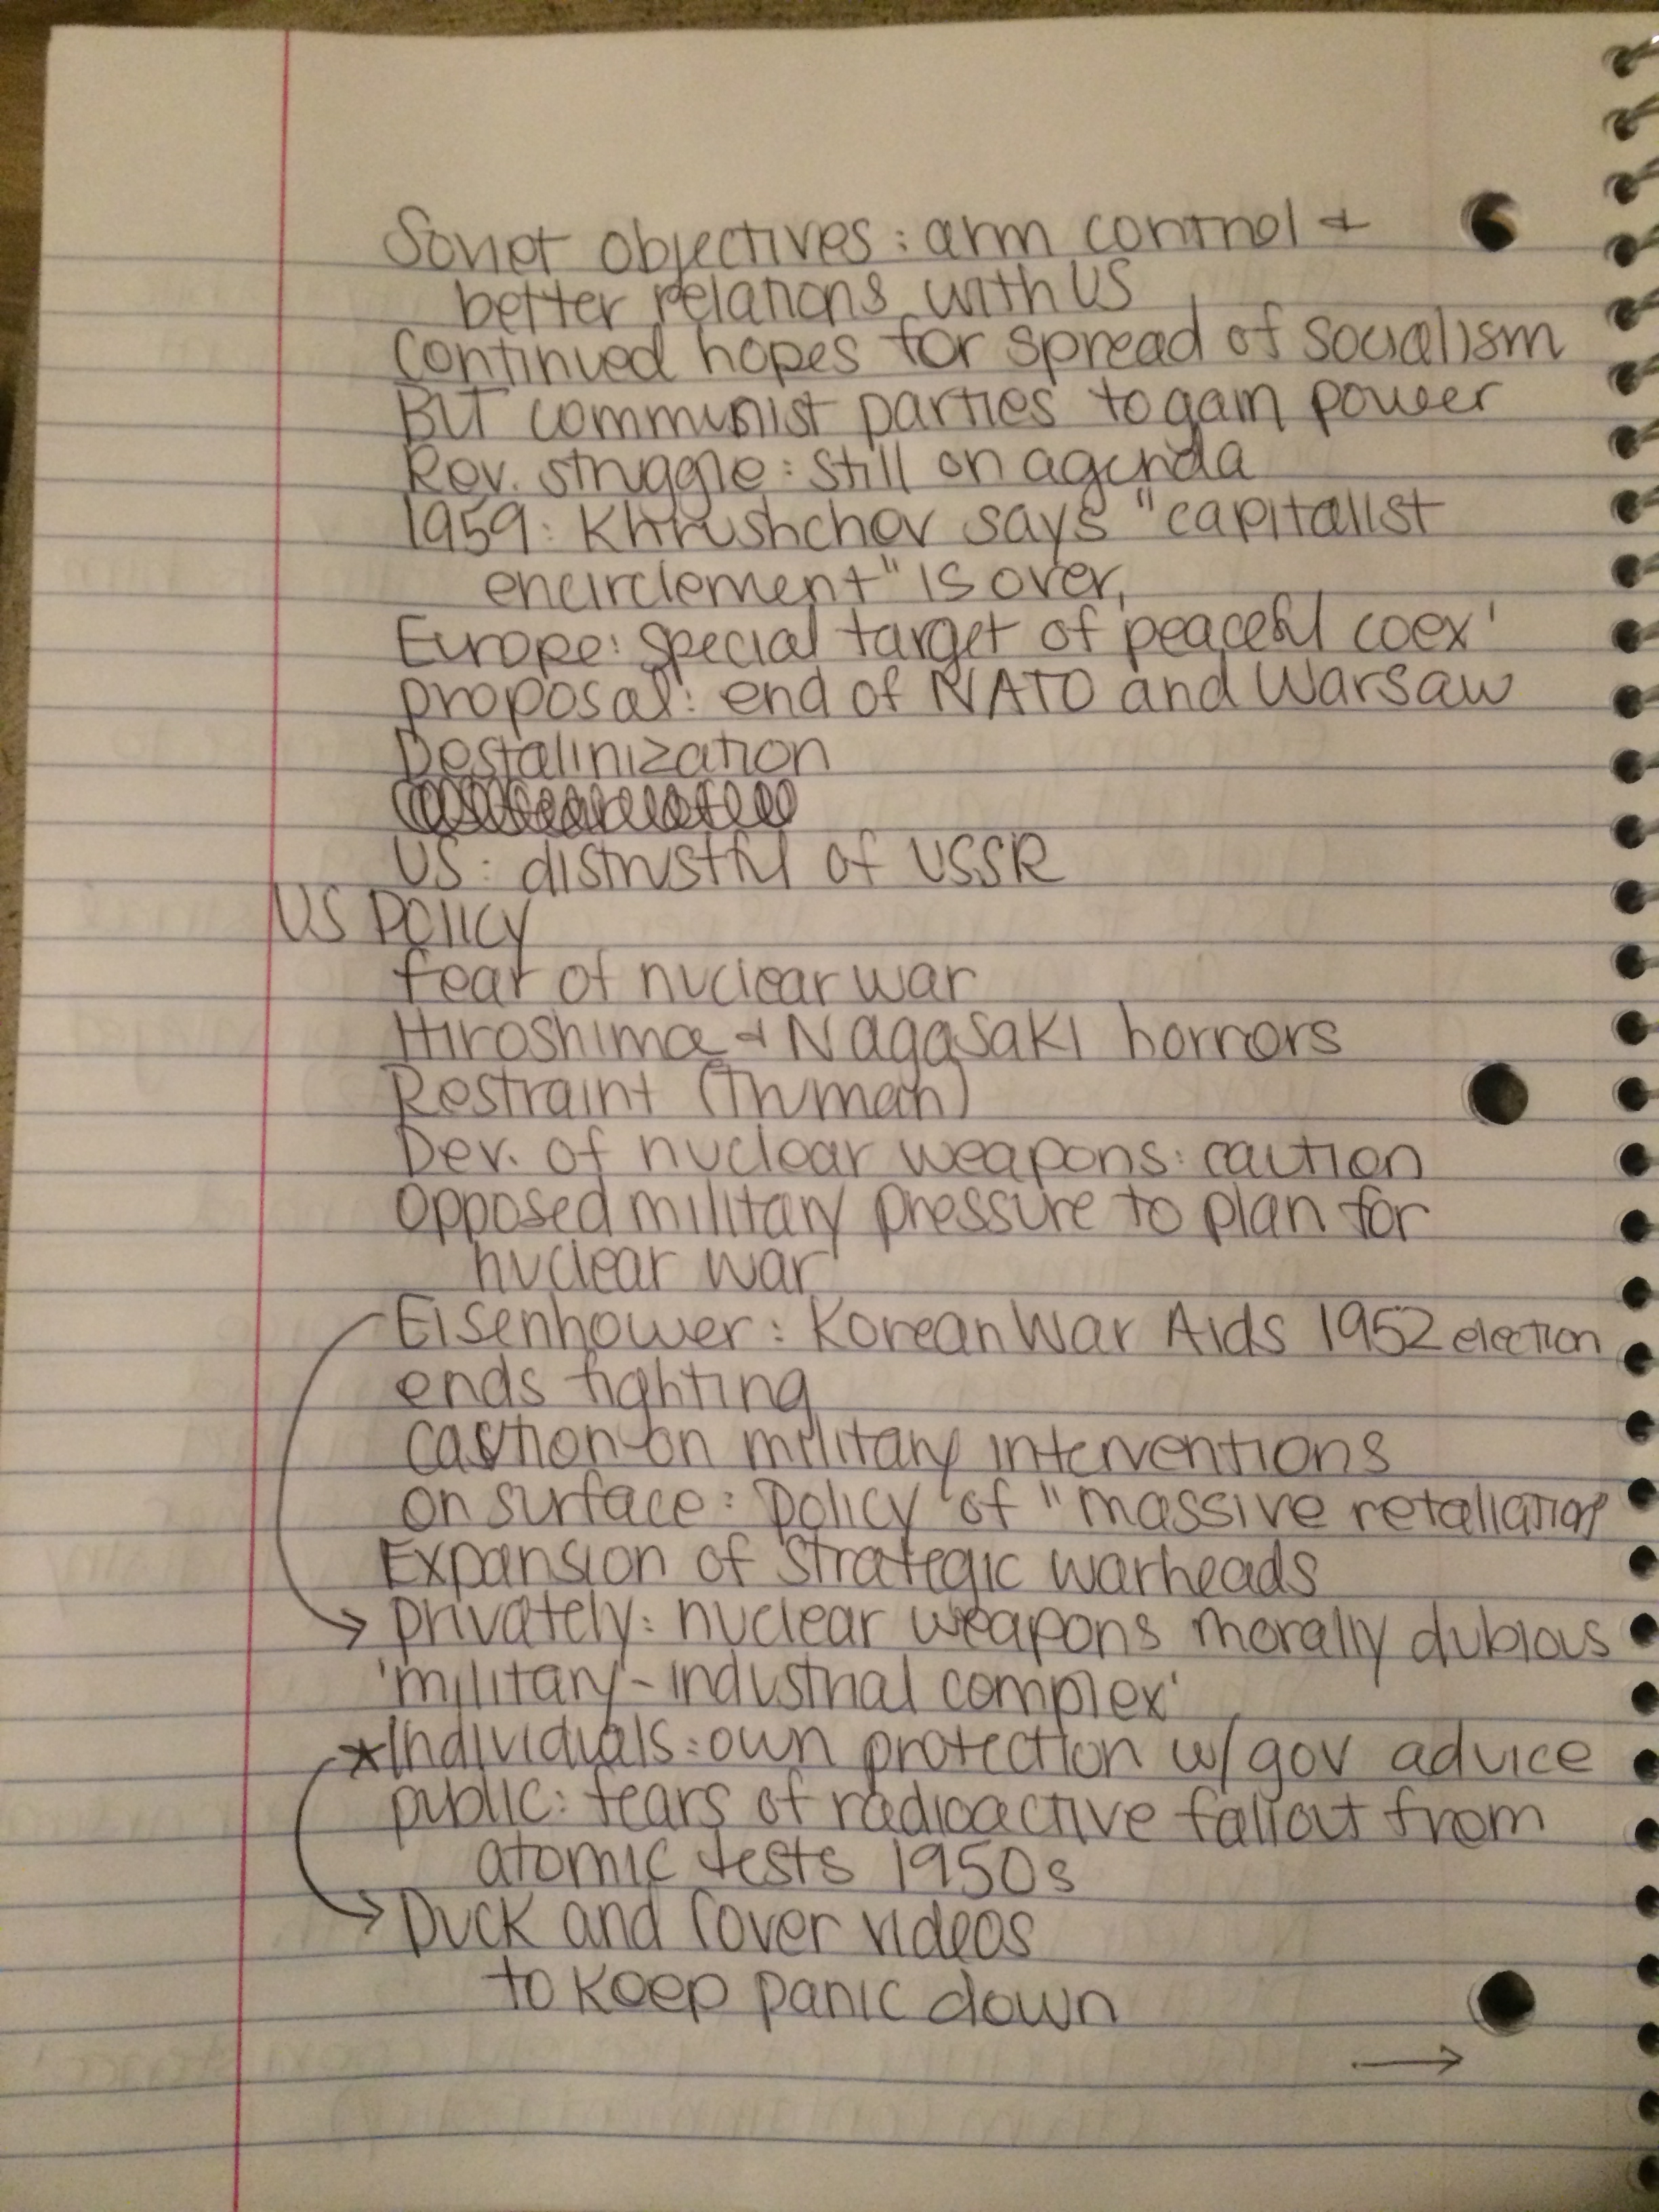 Soviet objectives: arm control +
better relations with US
Continued hopes for spread of socialism
BUT communist parties to gain power
Rev. struggle: still on agenda
1959: Khrushchev says "capitalist
encirclement" is over,
Europe: special target of peaceful coex'
proposal: end of NATO and Warsaw
Destalinization
US: distrustful of USSR
US Policy
fear of nuclear war
Hiroshima + Nagasaki horrors
Restraint (Truman)
Dev. of nuclear weapons: caution
opposed military pressure to plan for
nuclear war
Eisenhower: Korean War Aids 1952 election
ends fighting
caution on military interventions
on surface: policy of "massive retaliation"
Expansion of strategic warheads
→ privately: nuclear weapons morally dubious
'military-industrial complex'
*Individuals: own protection w/ gov advice
public: fears of radioactive fallout from
atomic tests 1950s
→ Duck and Cover videos
to keep panic down
→